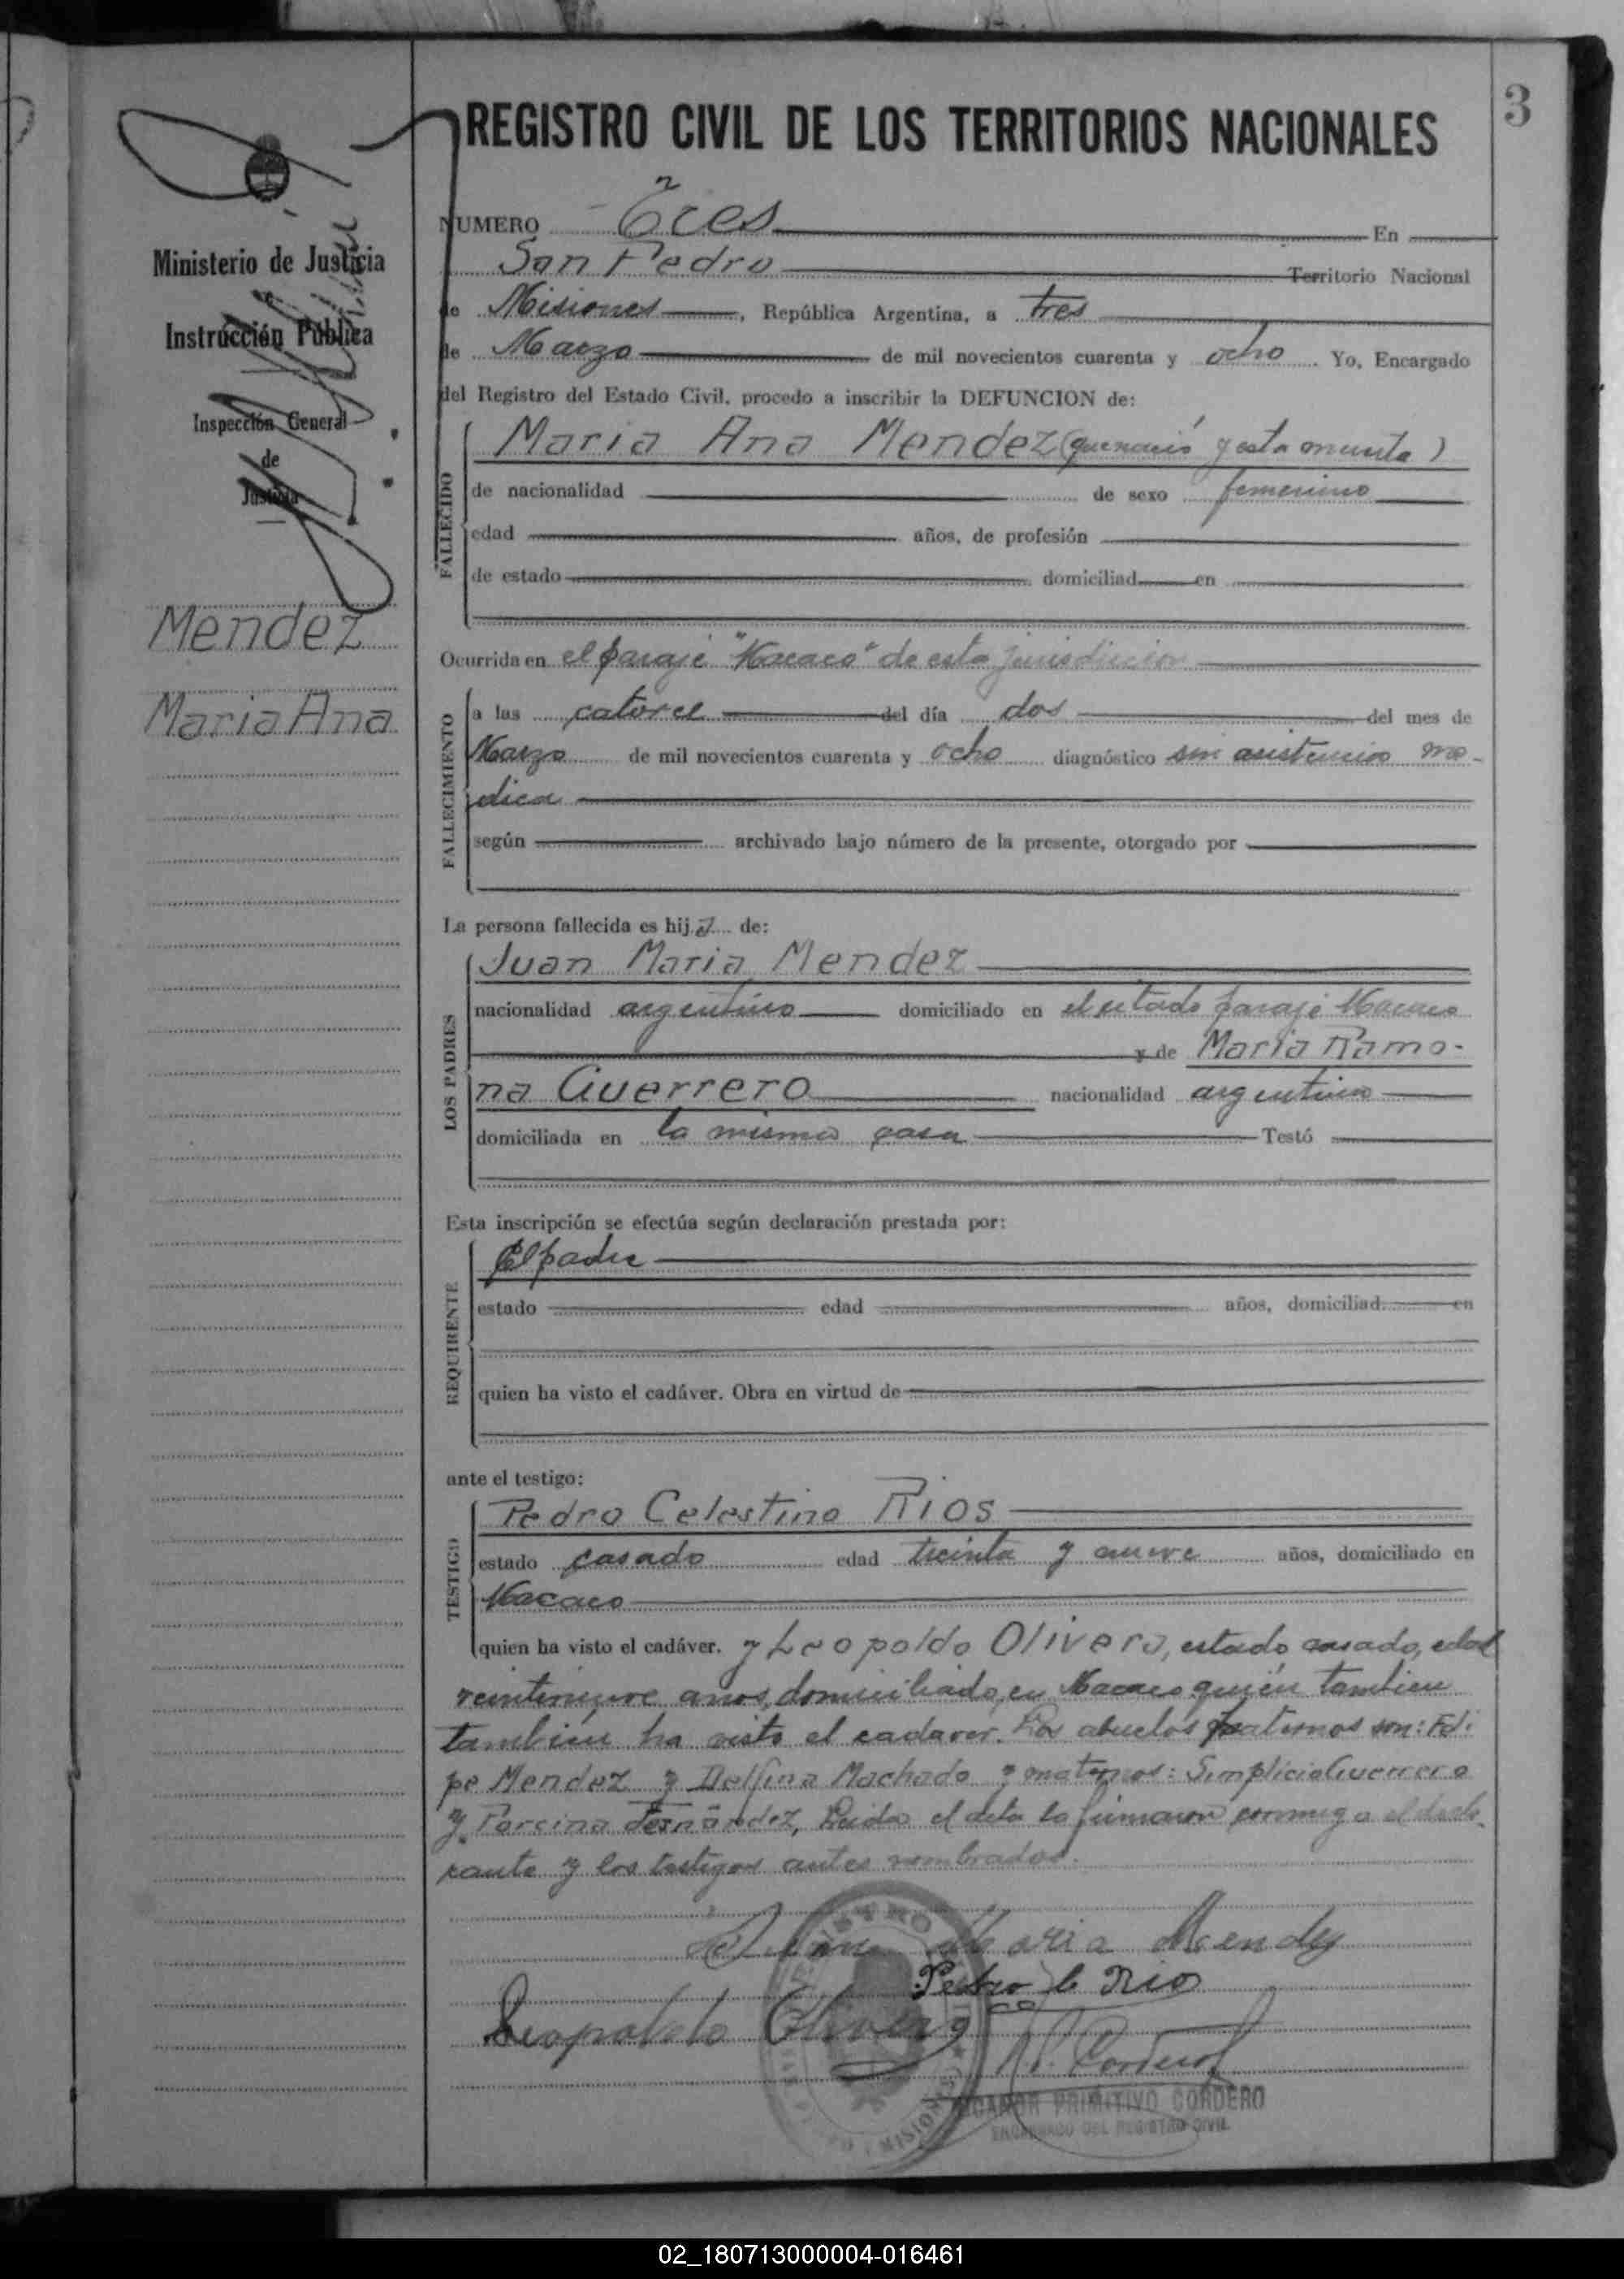 3
REGISTRO CIVIL DE LOS TERRITORIOS NACIONALES
Ministerio de Justicia
Instrucción Pública
Inspección General
de
Justicia
Mendez
Maria Ana
NUMERO Tres En
San Pedro Territorio Nacional
de Misiones, República Argentina, a tres
de Marzo de mil novecientos cuarenta y ocho. Yo, Encargado
del Registro del Estado Civil, procedo a inscribir la DEFUNCION de:
FALLECIDO
Maria Ana Mendez (que nació y esta muerta)
de nacionalidad de sexo femenino
edad años, de profesión
de estado domiciliad en
Ocurrida en el paraje "Macaco" de esta jurisdiccion
FALLECIMIENTO
a las catorce del día dos del mes de
Marzo de mil novecientos cuarenta y ocho diagnóstico sin asistencia me-
dica
según archivado bajo número de la presente, otorgado por
La persona fallecida es hija de:
LOS PADRES
Juan Maria Mendez
nacionalidad argentino domiciliado en el citado paraje Macaco
y de Maria Ramo-
na Guerrero nacionalidad argentina
domiciliada en la misma casa Testó
Esta inscripción se efectúa según declaración prestada por:
REQUIRENTE
El padre
estado edad años, domiciliad en
quien ha visto el cadáver. Obra en virtud de
ante el testigo:
TESTIGO
Pedro Celestino Rios
estado casado edad treinta y nueve años, domiciliado en
Macaco
quien ha visto el cadáver. y Leopoldo Olivera, estado casado, edad
veintinueve años, domiciliado en Macaco quien tambien
tambien ha visto el cadaver. Los abuelos paternos son: Feli
pe Mendez y Delfina Machado y maternos: Simplicio Guerrero
y Fernández, Leida el acta la firmaron conmigo el decla-
rante y los testigos antes nombrados.
Juan Maria Mendez
Pedro C Rios
Leopoldo Olivera
N. P. Cordero
MISIONES
NICANOR PRIMITIVO CORDERO
ENCARGADO DEL REGISTRO CIVIL
02_180713000004-016461